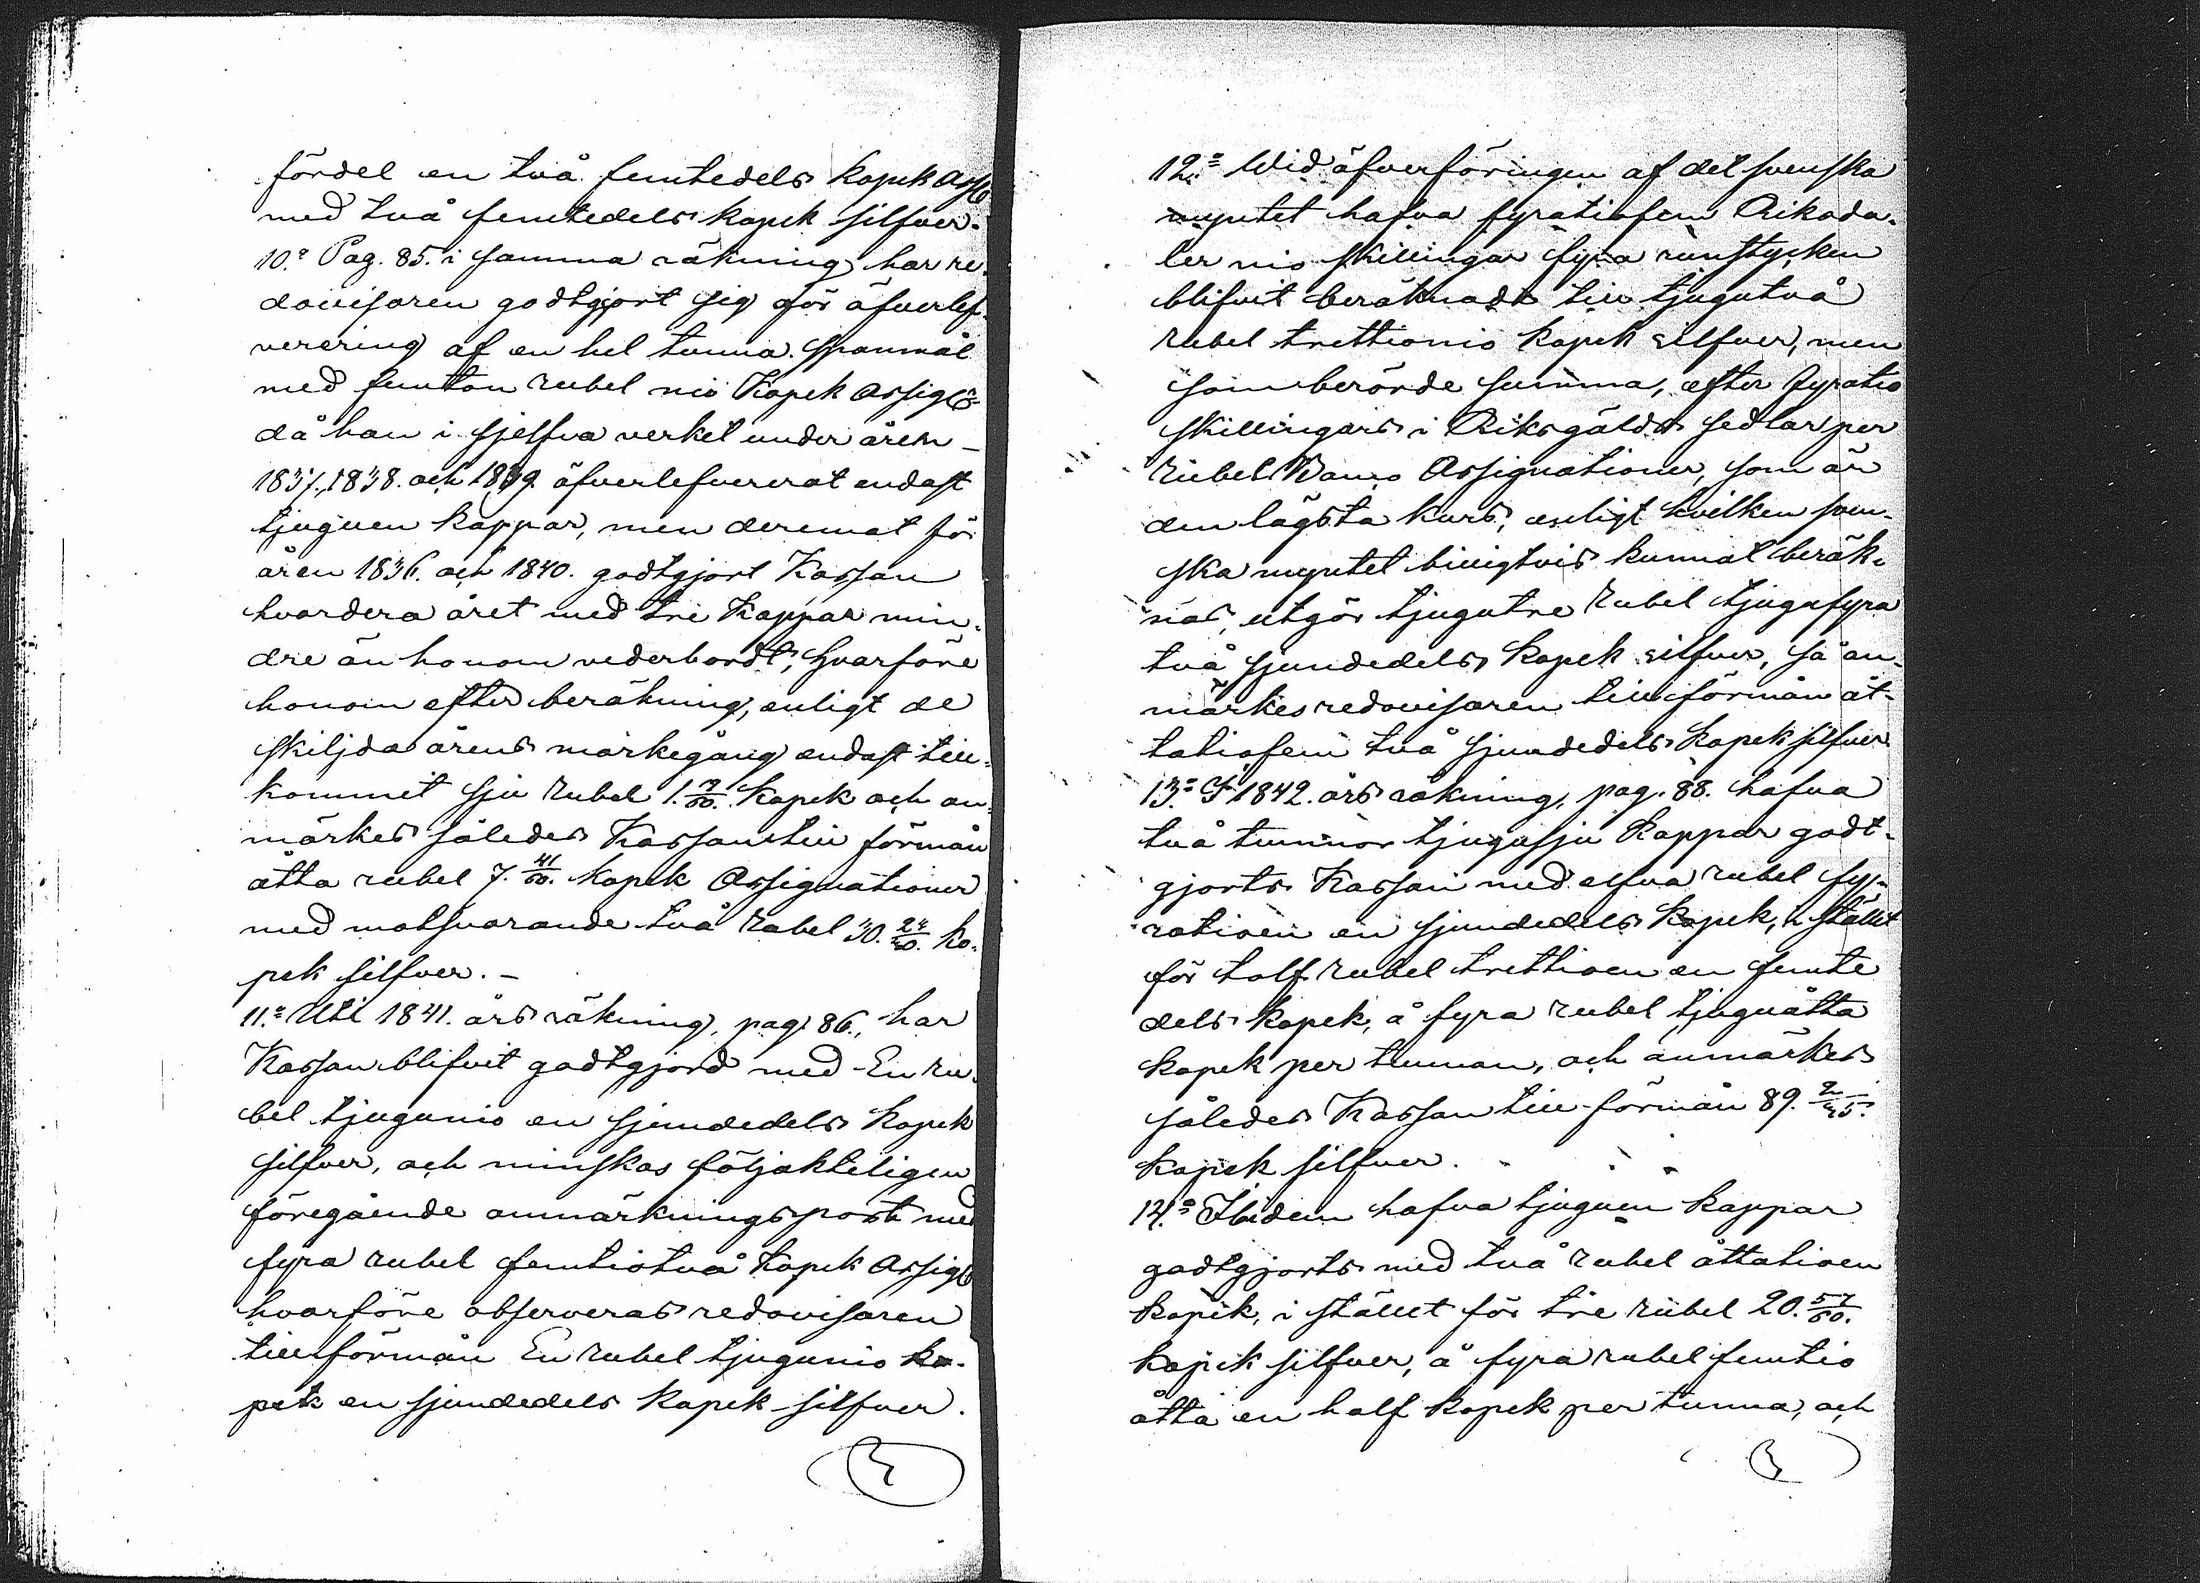 fördel en två femtedels kopek Assg
med två femtedels kopek silfver.
10.º Pag. 85. i samma räkning har re-
dovisaren godtgjort sig för äfverlef-
verering af en hel tunna spanmål
med femton rubel nio Kopek Assig
då han i sjelfva verket under åren –
1837, 1838. och 1839. äfverlefvererat endast
tjuguen kappar, men deremot för
åren 1836. och 1840. godtgjort Kassan
hvardera året med tre Kappar min-
dre än honom vederbordt, hvarföre
honom efter beräkning, enligt de
skiljda årens markegång endast till-
kommit sju Rubel 1. 9/60. Kopek och an-
märkes således Kassans till förmån
åtta rubel 7. 41/60. Kopek Assignationer
med motsvarande två Rubel 30. ko-
pek silfver. –
11.º Uti 1841. års räkning, pag 86., har
Kassan blifvit godtgjord med En ru-
bel tjugunio en sjundedels Kopek
silfver, och minskas följakteligen
föregående anmärkningspost med
fyra rubel femtiotvå Kopek Assig
hvarföre observeras redovisaren
till förmån En rubel tjugunio ko-
pek en sjundedels Kopek silfver.
12.º Wid äfverföringen af det svenska
myntet hafva fyratiofem Riksda-
ler nio skillingar fyra runstycken
blifvit beräknadt till tjugutvå
rubel trettionio kopek silfver, men
som berörde summa, efter fyratio
skillingars i Riksgälds sedlar per
Rubel Banco Assignationer, som är
den lägsta kurs, enligt hvilken sven-
ska myntet billigtvis kunnat beräk-
nas, utgör tjugutre Rubel tjugufyra
två sjundedels kopek silfver, så an-
märkes redovisaren till förmån åt-
tatiofem två sjundedels kopek silfver
13.º I 1842. års räkning, pag. 88. hafva
två tunnor tjugusju Kappar godt-
gjorts Kassan med elfva rubel fy-
ratioen en sjundedels Kopek, i stället
för tolf rubel trettioen en femte
dels kopek, å fyra rubel tjuguåtta
kopek per tunnan, och anmärkes
således Kassan till förmån 89. 2/35.
kopek silfver.
14.º Ibidem hafva tjuguen Kappar
godtgjorts med två rubel åttatioen
Kopek, i stället för tre rubel 20. 57/60.
kopek silfver, å fyra rubel femtio
åtta en half kopek per tunna, och